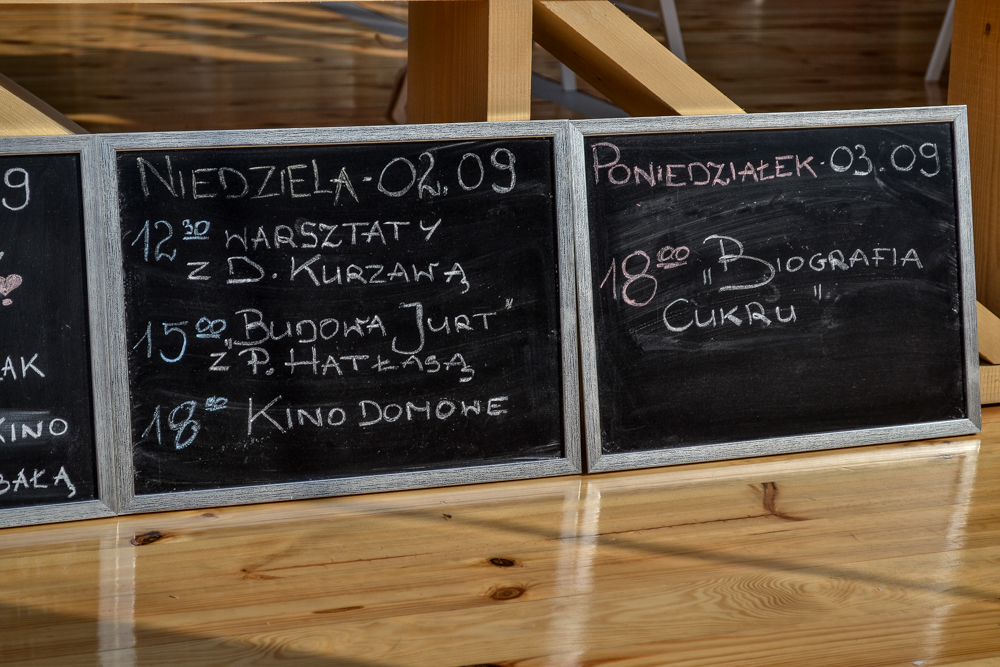 9
AK
KINO
BAŁĄ
NIEDZIELA - 02.09
12 30 WARSZTATY
Z D. KURZAWĄ
15 00 „BUDOWA JURT"
Z P. HATŁASĄ
18 00 KINO DOMOWE
PONIEDZIAŁEK - 03.09
18 00 „BIOGRAFIA
CUKRU"